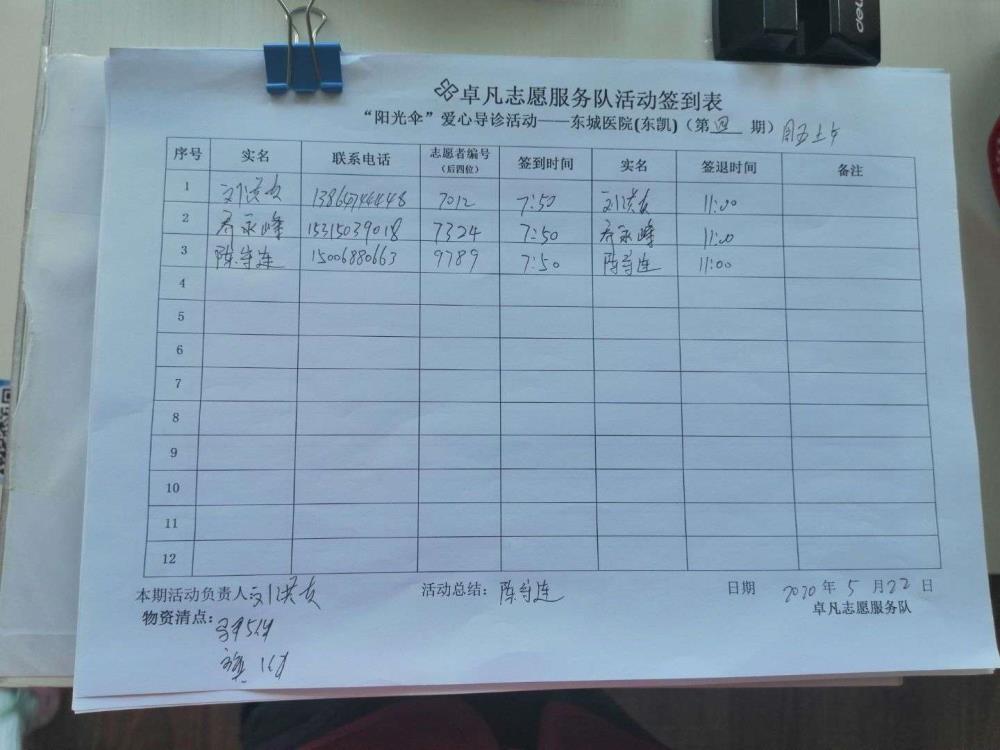 卓凡志愿服务队活动签到表
“阳光伞”爱心导诊活动——东城医院(东凯)（第四期）周五上午
序号 实名 联系电话 志愿者编号（后四位） 签到时间 实名 签退时间 备注
1 刘洪友 7012 7:50 刘洪友 11:00
2 乔永峰 15315039018 7324 7:50 乔永峰 11:00
3 陈守连 15006880663 9789 7:50 陈守连 11:00
4
5
6
7
8
9
10
11
12
本期活动负责人 刘洪友 活动总结：陈守连 日期 2020年5月22日
物资清点： 卓凡志愿服务队
deli